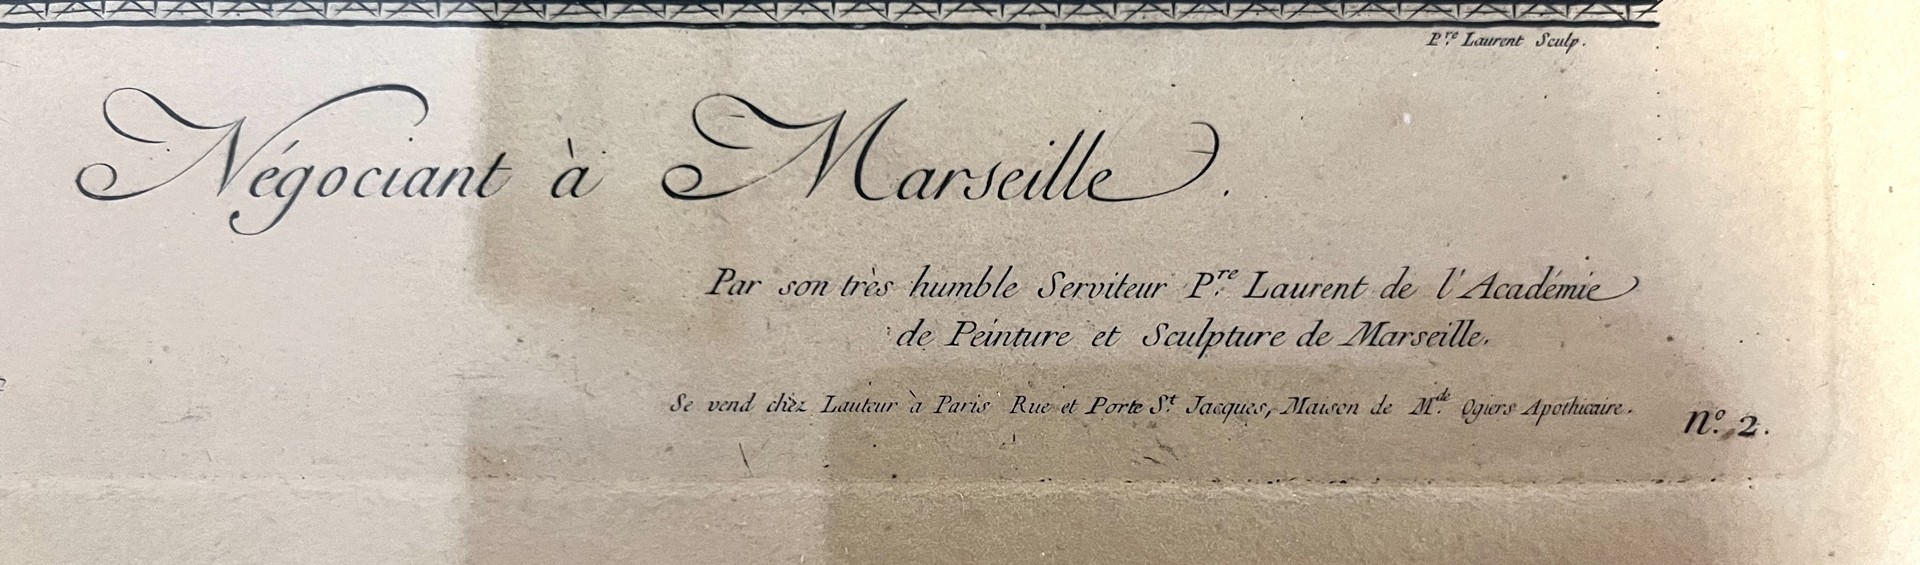 P.re Laurent Sculp.
Négociant à Marseille.
Par son très humble Serviteur P.re Laurent de l'Académie
de Peinture et Sculpture de Marseille.
Se vend chèz Lauteur à Paris Rue et Porte S.t Jacques, Maison de M.de Ogiers Apothicaire.
n.o 2.